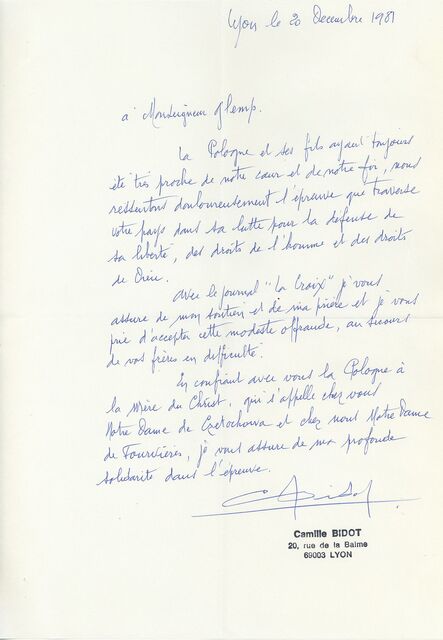 Lyon le 20 Decembre 1981
à Monseigneur Glemp.
La Pologne et ses fils ayant toujours
été très proche de notre cœur et de notre foi, nous
ressentons douloureusement l'épreuve que traverse
votre pays dans sa lutte pour la défense de
sa liberté, des droits de l'homme et des droits
de Dieu.
Avec le journal "La Croix" je vous
assure de mon soutien et de ma prière et je vous
prie d'accepter cette modeste offrande, au secours
de vos frères en difficulté.
En confiant avec vous la Pologne à
la Mère du Christ, qui s'appelle chez vous
Notre Dame de Czestochowa et chez nous Notre Dame
de Fourvières, je vous assure de ma profonde
solidarité dans l'épreuve.
CBidot
Camille BIDOT
20, rue de la Balme
69003 LYON